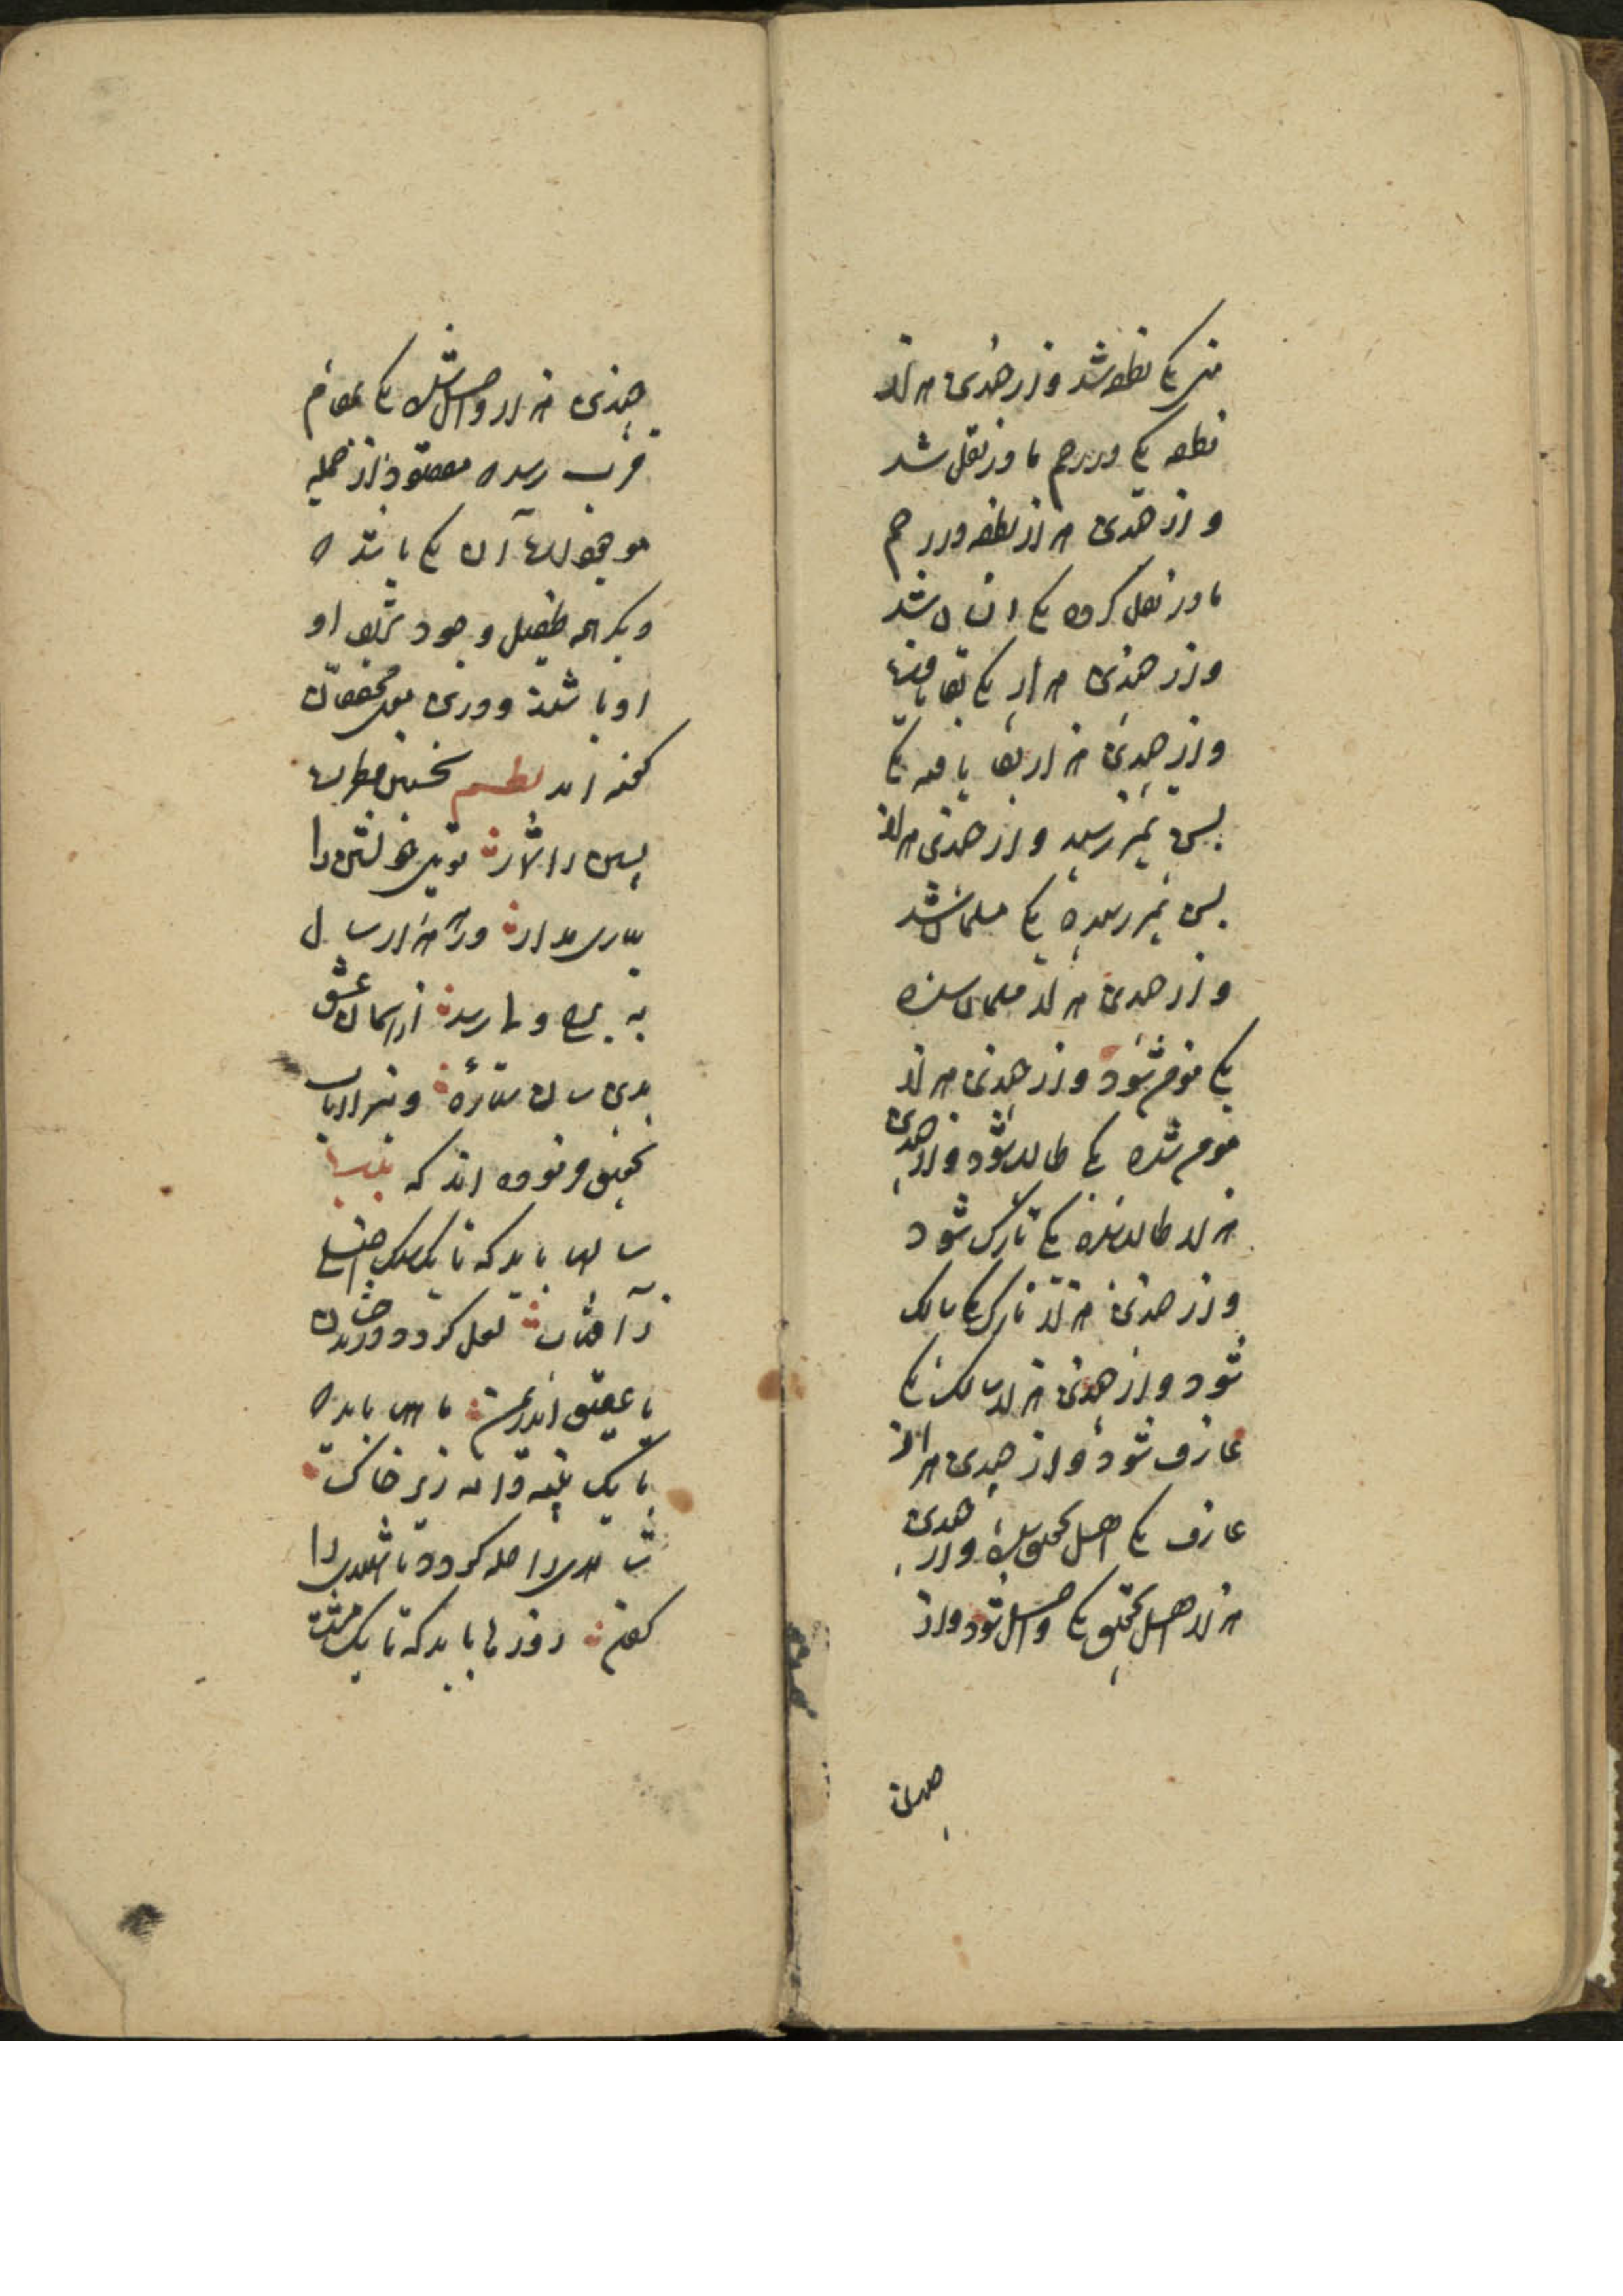 منی یکی نطفه شد و از چندین هزار
نطفه یکی در رحم مادر نقل شد
و از چندین هزار نطفه در رحم
مادر نقل کرده یکی انسان شد
و از چندین هزار یکی بقا یافت
و از چندین هزار بقا یافته یکی
بسن تمیز رسید و از چندین هزار
بسن تمیز رسیده یکی مسلمان شد
و از چندین هزار مسلمان شده
یکی مومن شود و از چندین هزار
مومن شده یکی طالب شود و از چندین
هزار طالب شده یکی تارک شود
و از چندین هزار تارک یکی سالک
شود و از چندین هزار سالک یکی
عارف شود و از چندین هزار
عارف یکی اهل تحقیق شده و از چندین
هزار اهل تحقیق یکی واصل شود و از
چندین
چندین هزار واصل شده یکی بمقام
قرب رسد مقصود از جمله
موجودات آن یکی باشد
دیگر همه طفیل وجود شریف او
باشند و درین معنی محققان
گفته اند نظم نخستین فطرت
پسین را شمار تویی خویشتن را
ببازی مدار در هزار سال
به برج ولا رسد از آسمان عشق
بدین سان ستاره و نیز ارباب
تحقیق فرموده اند که بیت
سالها باید که تا یک سنگ اصلی
ز آفتاب لعل گردد در بدخشان
یا عقیق اندر یمن ماهها باید
تا یک پنبه دانه زیر خاک
شاهدی را حله گردد یا شهیدی را
کفن روزها باید که تا یک مشت